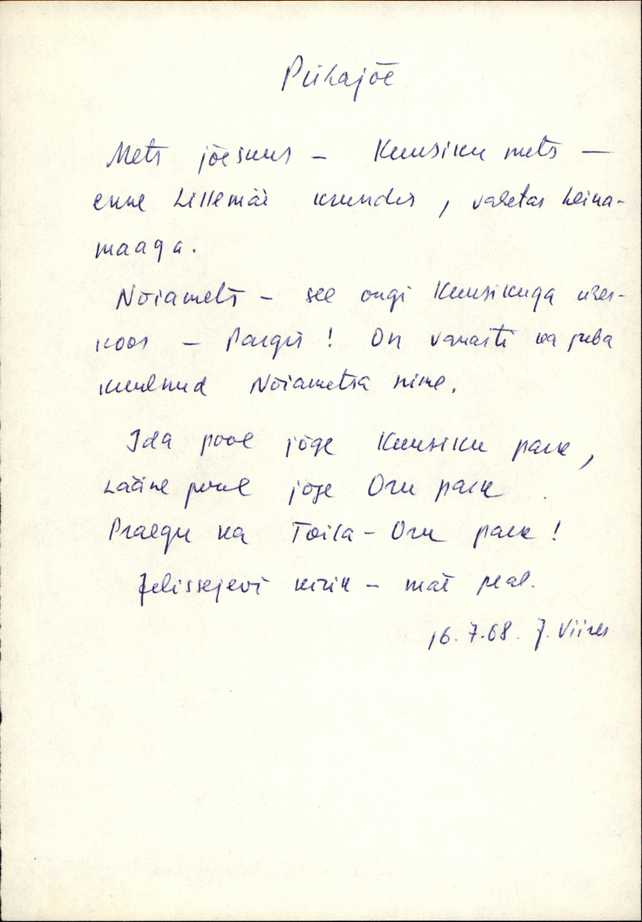 Pühajõe
Mets jõesuus – Kuusiku mets –
enne Lillemäe krundis, vahetas heina-
maaga.
Nõiamets – see ongi Kuusikuga ühes-
koos – Pargis! On vanasti ka juba
kuulnud Nõiametsa nime.
Ida pool jõge Kuusiku park,
Lääne pool jõge Oru park.
Praegu ka Toila-Oru park!
Jelissejevi kirik – mäe peal.
16.7.68. J. Viires